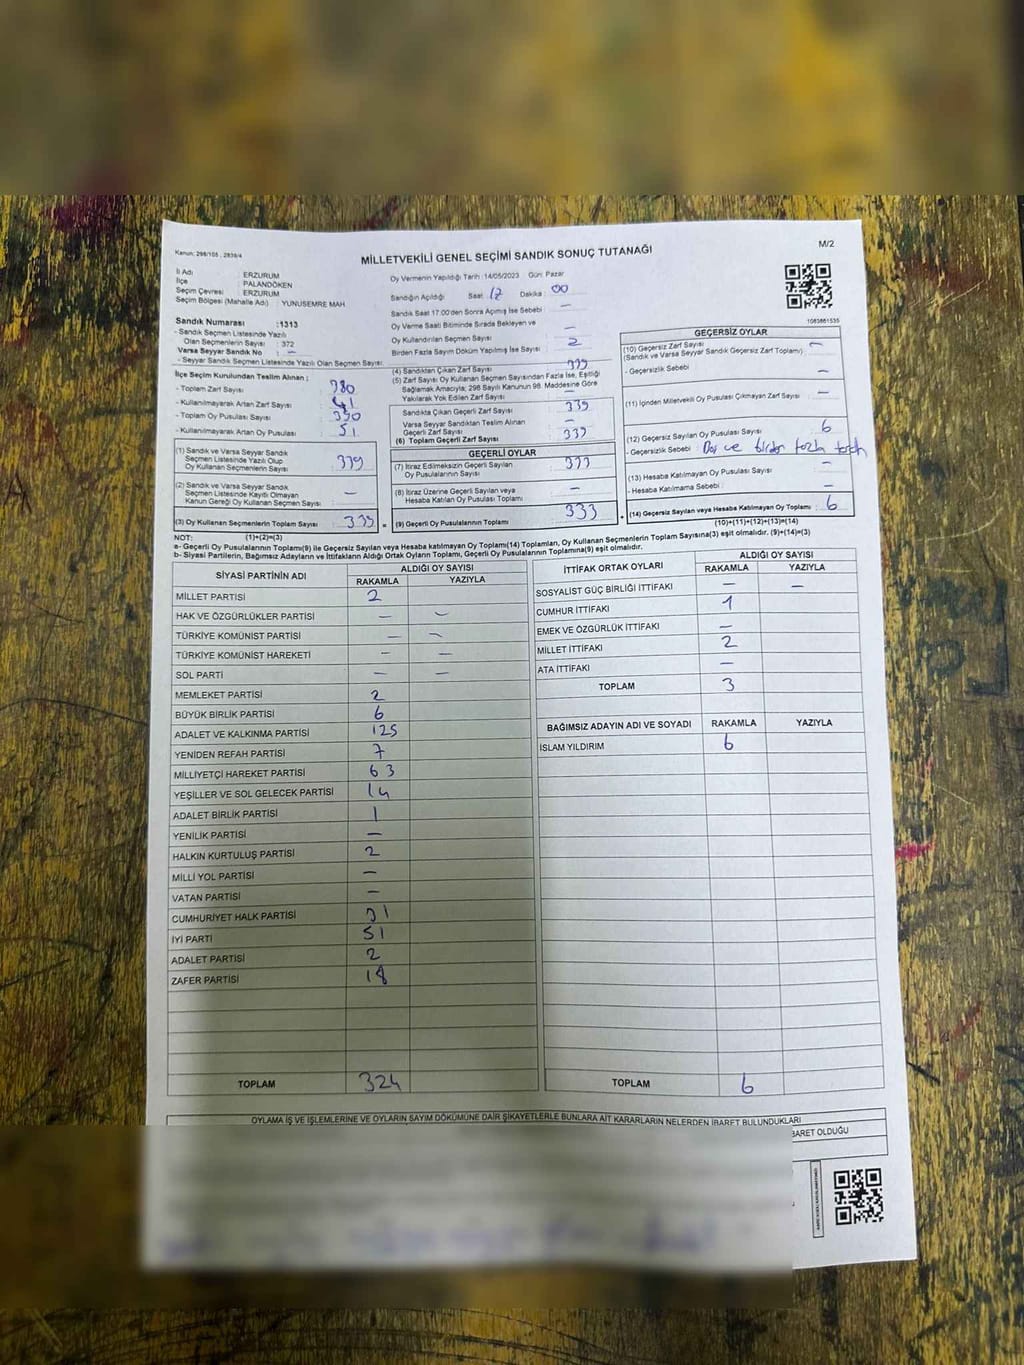 Kanun: 298/105 ; 2839/4
MİLLETVEKİLİ GENEL SEÇİMİ SANDIK SONUÇ TUTANAĞI
M/2
İl Adı : ERZURUM
İlçe : PALANDÖKEN
Seçim Çevresi : ERZURUM
Seçim Bölgesi (Mahalle Adı) : YUNUSEMRE MAH
Sandık Numarası :1313
- Sandık Seçmen Listesinde Yazılı
Olan Seçmenlerin Sayısı : 372
Varsa Seyyar Sandık No : –
- Seyyar Sandık Seçmen Listesinde Yazılı Olan Seçmen Sayısı:
Oy Vermenin Yapıldığı Tarih :14/05/2023 Gün: Pazar
Sandığın Açıldığı Saat : 17 Dakika : 00
Sandık Saat 17:00'den Sonra Açılmış İse Sebebi : –
Oy Verme Saati Bitiminde Sırada Bekleyen ve
Oy Kullandırılan Seçmen Sayısı : –
Birden Fazla Sayım Döküm Yapılmış İse Sayısı : 2
1083861535
İlçe Seçim Kurulundan Teslim Alınan ;
- Toplam Zarf Sayısı : 380
- Kullanılmayarak Artan Zarf Sayısı : 41
- Toplam Oy Pusulası Sayısı : 390
- Kullanılmayarak Artan Oy Pusulası : 51
(1) Sandık ve Varsa Seyyar Sandık
Seçmen Listesinde Yazılı Olup
Oy Kullanan Seçmenlerin Sayısı : 339
(2) Sandık ve Varsa Seyyar Sandık
Seçmen Listesinde Kayıtlı Olmayan
Kanun Gereği Oy Kullanan Seçmen Sayısı –
(3) Oy Kullanan Seçmenlerin Toplam Sayısı : 339
(4) Sandıktan Çıkan Zarf Sayısı : 339
(5) Zarf Sayısı Oy Kullanan Seçmen Sayısından Fazla İse, Eşitliği
Sağlamak Amacıyla; 298 Sayılı Kanunun 98. Maddesine Göre
Yakılarak Yok Edilen Zarf Sayısı : –
Sandıkta Çıkan Geçerli Zarf Sayısı : 339
Varsa Seyyar Sandıktan Teslim Alınan
Geçerli Zarf Sayısı : –
(6) Toplam Geçerli Zarf Sayısı : 339
GEÇERLİ OYLAR
(7) İtiraz Edilmeksizin Geçerli Sayılan
Oy Pusulalarının Sayısı : 333
(8) İtiraz Üzerine Geçerli Sayılan veya
Hesaba Katılan Oy Pusulası Toplamı : –
= (9) Geçerli Oy Pusulalarının Toplamı : 333
GEÇERSİZ OYLAR
(10) Geçersiz Zarf Sayısı : –
(Sandık ve Varsa Seyyar Sandık Geçersiz Zarf Toplamı)
- Geçersizlik Sebebi : –
(11) İçinden Milletvekili Oy Pusulası Çıkmayan Zarf Sayısı : –
(12) Geçersiz Sayılan Oy Pusulası Sayısı : 6
- Geçersizlik Sebebi : Boş ve birden fazla tercih
(13) Hesaba Katılmayan Oy Pusulası Sayısı : –
- Hesaba Katılmama Sebebi : –
+ (14) Geçersiz Sayılan veya Hesaba Katılmayan Oy Toplamı : 6
(10)+(11)+(12)+(13)=(14)
NOT: (1)+(2)=(3)
a- Geçerli Oy Pusulalarının Toplamı(9) ile Geçersiz Sayılan veya Hesaba katılmayan Oy Toplamı(14) Toplamları, Oy Kullanan Seçmenlerin Toplam Sayısına(3) eşit olmalıdır. (9)+(14)=(3)
b- Siyasi Partilerin, Bağımsız Adayların ve İttifakların Aldığı Ortak Oyların Toplamı, Geçerli Oy Pusulalarının Toplamına(9) eşit olmalıdır.
SİYASİ PARTİNİN ADI ALDIĞI OY SAYISI
RAKAMLA YAZIYLA
MİLLET PARTİSİ 2
HAK VE ÖZGÜRLÜKLER PARTİSİ – –
TÜRKİYE KOMÜNİST PARTİSİ – –
TÜRKİYE KOMÜNİST HAREKETİ – –
SOL PARTİ – –
MEMLEKET PARTİSİ 2
BÜYÜK BİRLİK PARTİSİ 6
ADALET VE KALKINMA PARTİSİ 125
YENİDEN REFAH PARTİSİ 7
MİLLİYETÇİ HAREKET PARTİSİ 63
YEŞİLLER VE SOL GELECEK PARTİSİ 14
ADALET BİRLİK PARTİSİ 1
YENİLİK PARTİSİ –
HALKIN KURTULUŞ PARTİSİ 2
MİLLİ YOL PARTİSİ –
VATAN PARTİSİ –
CUMHURİYET HALK PARTİSİ 31
İYİ PARTİ 51
ADALET PARTİSİ 2
ZAFER PARTİSİ 18
TOPLAM 324
İTTİFAK ORTAK OYLARI ALDIĞI OY SAYISI
RAKAMLA YAZIYLA
SOSYALİST GÜÇ BİRLİĞİ İTTİFAKI – –
CUMHUR İTTİFAKI 1
EMEK VE ÖZGÜRLÜK İTTİFAKI –
MİLLET İTTİFAKI 2
ATA İTTİFAKI –
TOPLAM 3
BAĞIMSIZ ADAYIN ADI VE SOYADI RAKAMLA YAZIYLA
İSLAM YILDIRIM 6
TOPLAM 6
OYLAMA İŞ VE İŞLEMLERİNE VE OYLARIN SAYIM DÖKÜMÜNE DAİR ŞİKAYETLERLE BUNLARA AİT KARARLARIN NELERDEN İBARET BULUNDUKLARI
BARET OLDUĞU